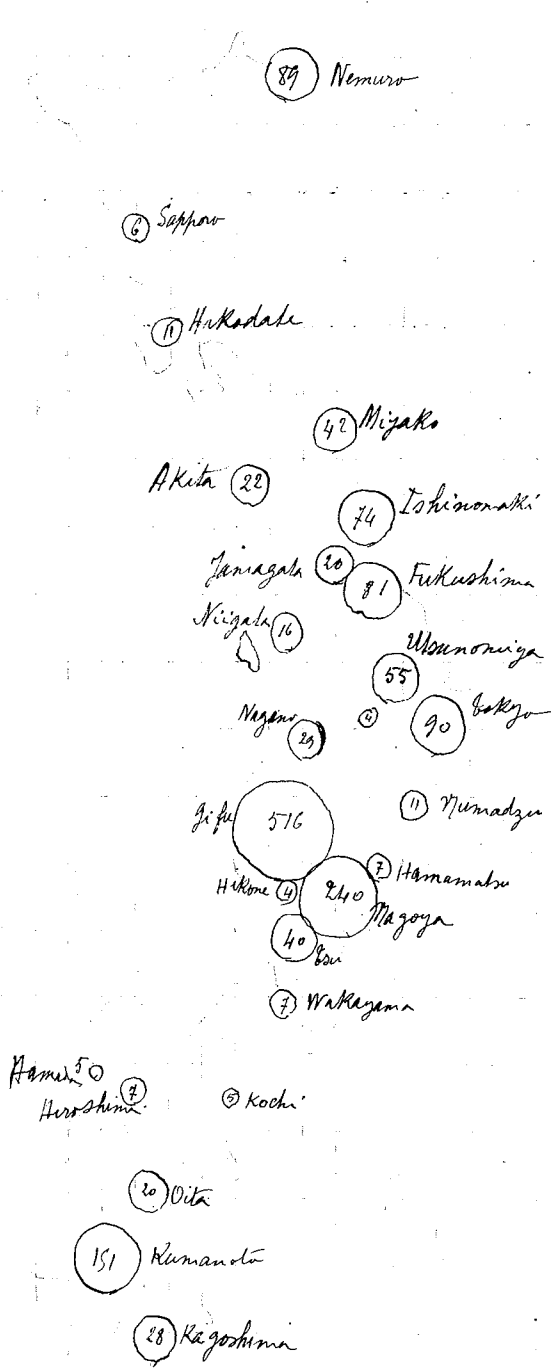 89 Nemuro
6 Sapporo
11 Hakodate
42 Miyako
Akita 22
74 Ishinomaki
Jamagata 20
81 Fukushima
Niigata 16
Utsunomiya
55
4
90 Tokyo
Nagano 29
11 Numadzu
Gifu 516
7 Hamamatsu
Hikone 4
240 Nagoya
40 Tsu
7 Wakayama
Hamada 5
Hiroshima 7
5 Kochi
20 Oita
151 Kumamoto
28 Kagoshima